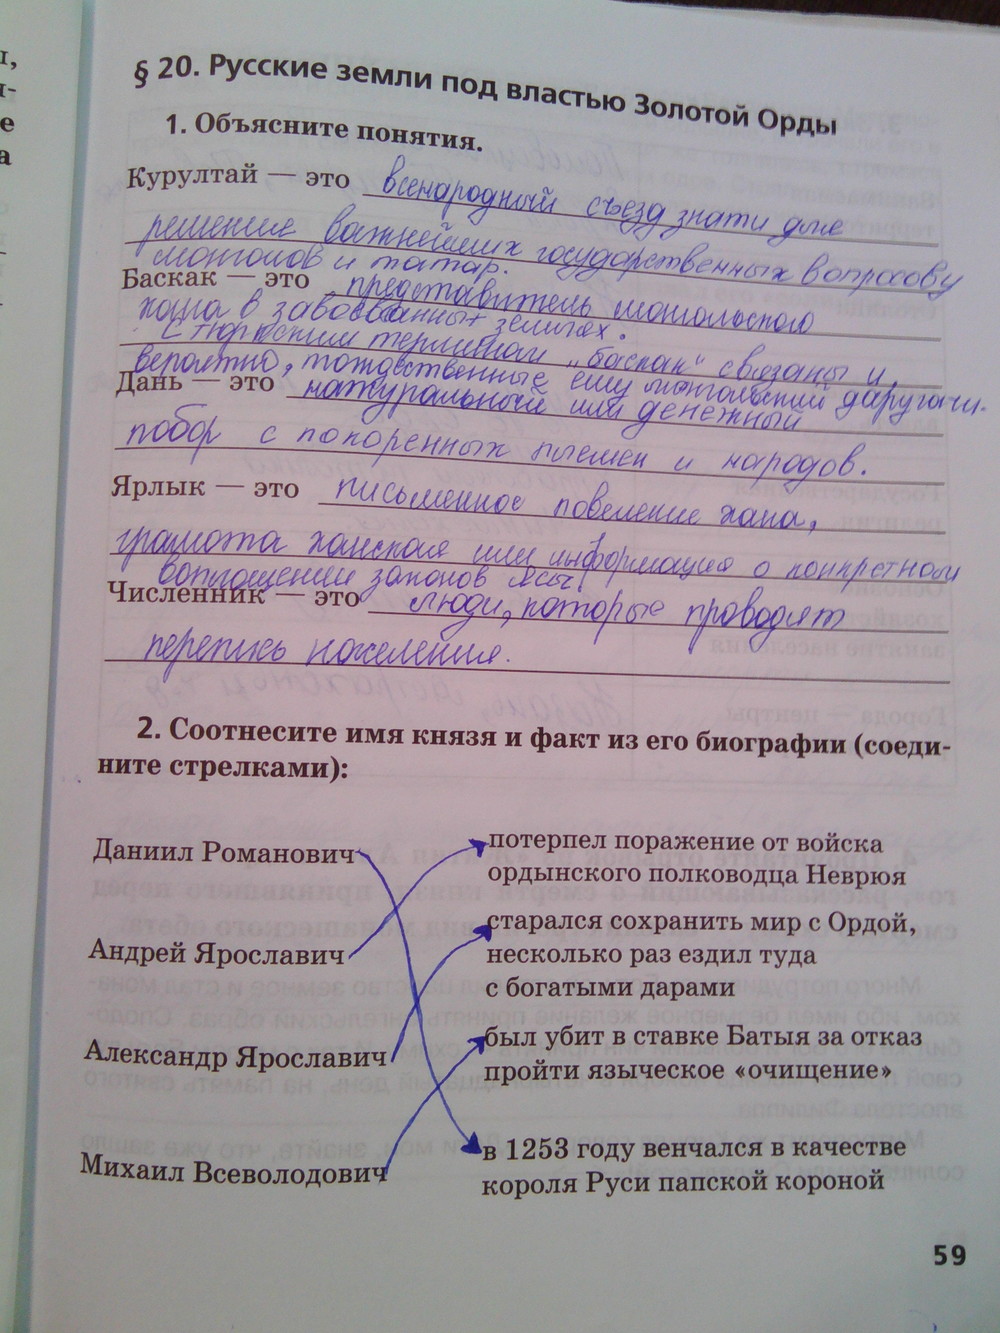 § 20. Русские земли под властью Золотой Орды
1. Объясните понятия.
Курултай — это всенародный съезд знати для
решение важнейших государственных вопросов у
монголов и татар.
Баскак — это представитель монгольского
хана в завоёванных землях.
С тюркским термином „баскак“ связаны и,
вероятно, тождественные ему монгольский даругачи.
Дань — это натуральный или денежный
побор с покоренных племен и народов.
Ярлык — это письменное повеление хана,
грамота ханская или информация о конкретном
воплощении законов Ясы
Численник — это люди, которые проводят
перепись населения.
2. Соотнесите имя князя и факт из его биографии (соеди-
ните стрелками):
Даниил Романович
Андрей Ярославич
Александр Ярославич
Михаил Всеволодович
потерпел поражение от войска
ордынского полководца Неврюя
старался сохранить мир с Ордой,
несколько раз ездил туда
с богатыми дарами
был убит в ставке Батыя за отказ
пройти языческое «очищение»
в 1253 году венчался в качестве
короля Руси папской короной
59